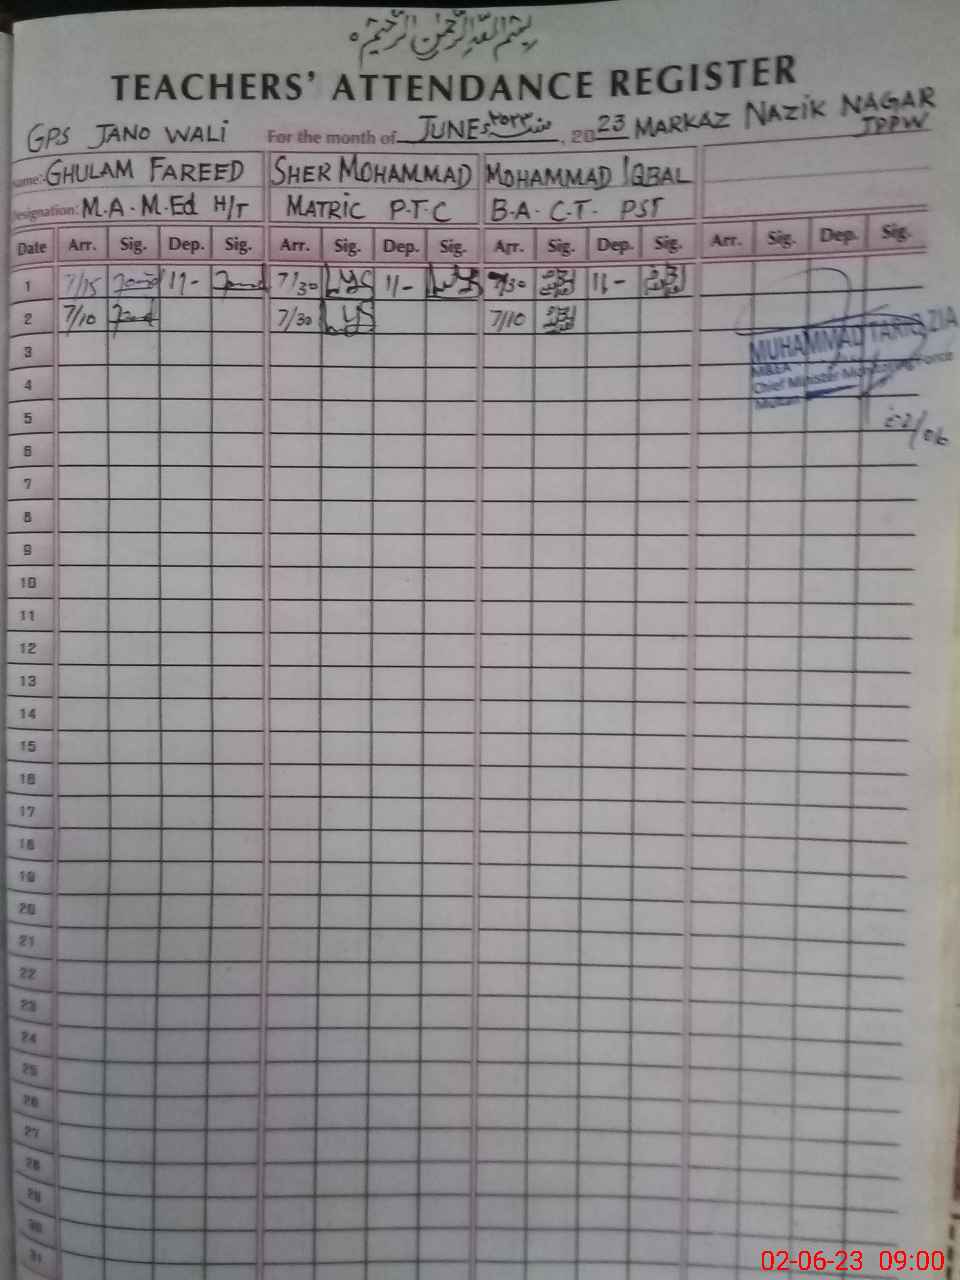 بسم اللہ الرحمٰن الرحیم
TEACHERS' ATTENDANCE REGISTER
GPS JANO WALI For the month of JUNE, 2023 MARKAZ NAZIK NAGAR
JPPW
Name: GHULAM FAREED SHER MOHAMMAD MOHAMMAD IQBAL
Designation: M.A-M.Ed H/T MATRIC P.T.C B.A- C.T- PST
Date Arr. Sig. Dep. Sig. Arr. Sig. Dep. Sig. Arr. Sig. Dep. Sig. Arr. Sig. Dep. Sig.
1 7/15 11- 7/30 11- 7/30 11-
2 7/10 7/30 7/10
3
MUHAMMAD TARIQ ZIA
MEA
4
Chief Minister Monitoring Force
Multan
5
02/06
6
7
8
9
10
11
12
13
14
15
16
17
18
19
20
21
22
23
24
25
26
27
28
29
30
31
02-06-23 09:00